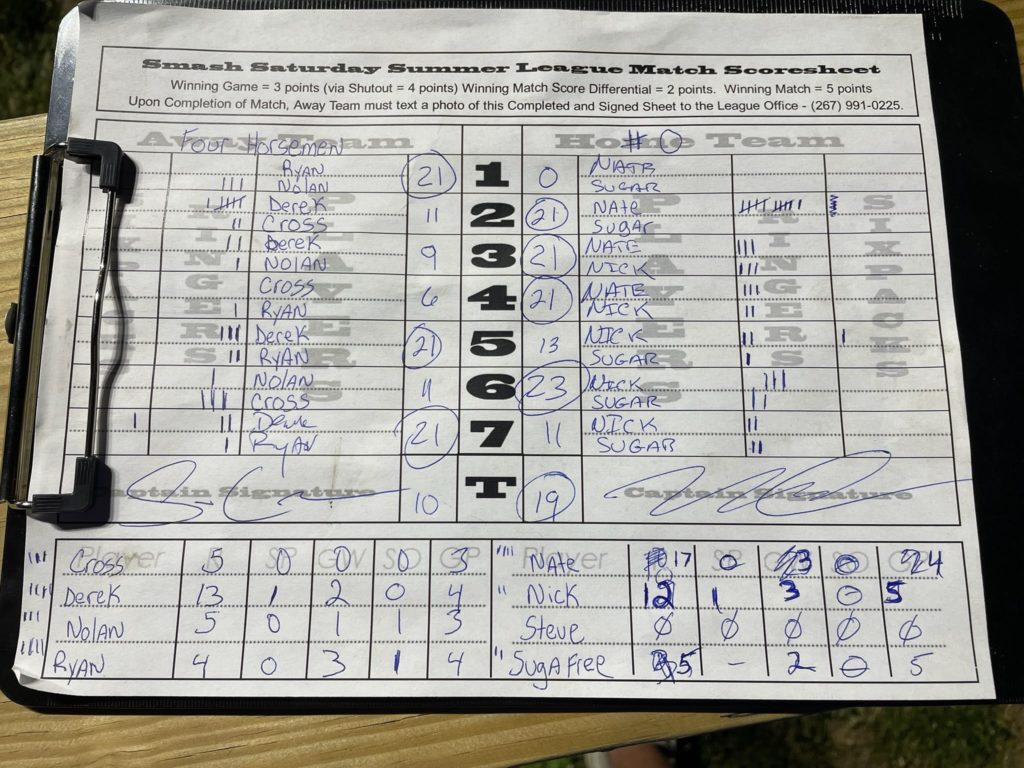 Smash Saturday Summer League Match Scoresheet
Winning Game = 3 points (via Shutout = 4 points) Winning Match Score Differential = 2 points. Winning Match = 5 points
Upon Completion of Match, Away Team must text a photo of this Completed and Signed Sheet to the League Office - (267) 991-0225.
Away Team Home Team
Four Horsemen # 0
RINGERS PLAYERS PLAYERS RINGERS SIXPACKS
RYAN 21 1 0 NATE
NOLAN SUGAR
Derek 11 2 21 NAte
Cross SugAr
Derek 9 3 21 NATE
NOLAN NICK
Cross 6 4 21 NATE
RYAN NICK
Derek 21 5 13 NICK
RYAN SUGAR
NOLAN 11 6 23 NICK
Cross SUGAR
Derek 21 7 11 NICK
RYAN SUGAR
Captain Signature 10 T 19 Captain Signature
Player SP GW SO GP Player SP GW SO GP
Cross 5 0 0 0 3 NAte 17 0 3 0 4
Derek 13 1 2 0 4 Nick 12 1 3 0 5
NOLAN 5 0 1 1 3 Steve Ø Ø Ø Ø Ø
RYAN 4 0 3 1 4 SugA Free 5 - 2 0 5